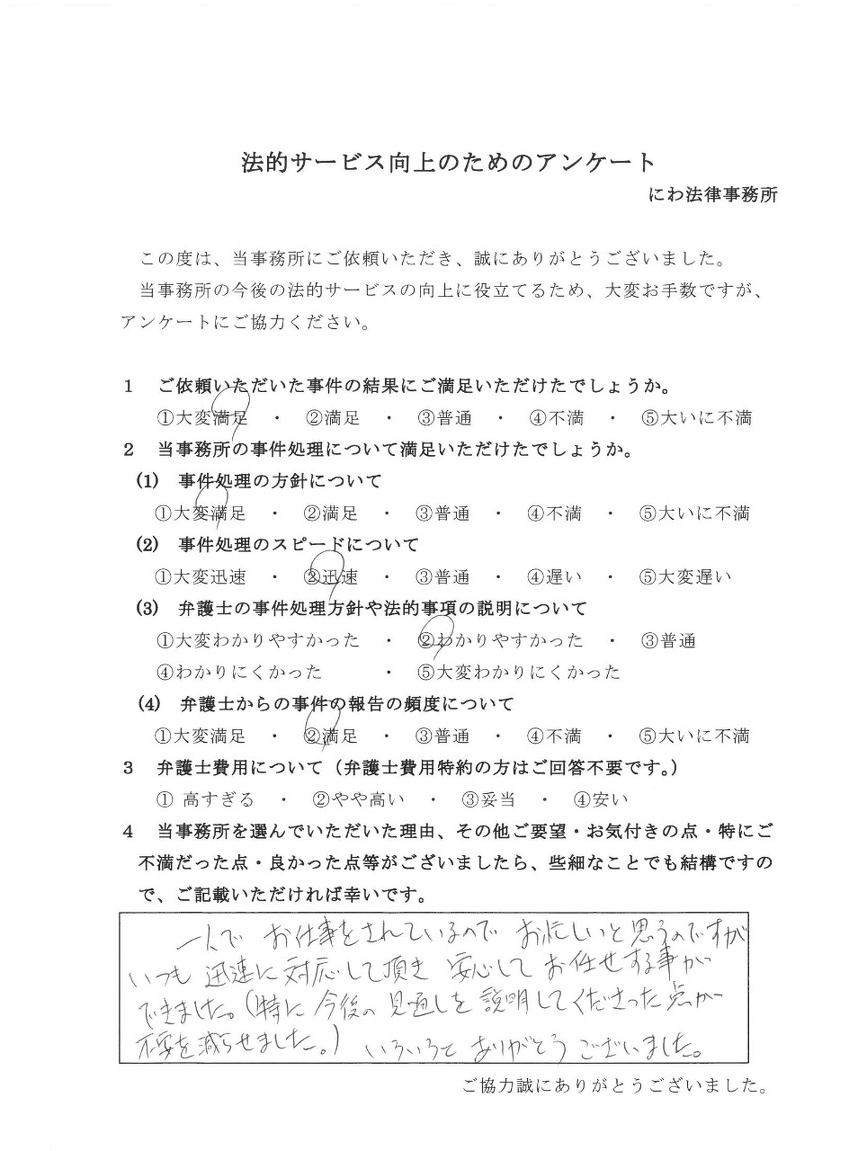 法的サービス向上のためのアンケート
にわ法律事務所
この度は、当事務所にご依頼いただき、誠にありがとうございました。
当事務所の今後の法的サービスの向上に役立てるため、大変お手数ですが、
アンケートにご協力ください。
1 ご依頼いただいた事件の結果にご満足いただけたでしょうか。
①大変満足 ・ ②満足 ・ ③普通 ・ ④不満 ・ ⑤大いに不満
2 当事務所の事件処理について満足いただけたでしょうか。
(1) 事件処理の方針について
①大変満足 ・ ②満足 ・ ③普通 ・ ④不満 ・ ⑤大いに不満
(2) 事件処理のスピードについて
①大変迅速 ・ ②迅速 ・ ③普通 ・ ④遅い ・ ⑤大変遅い
(3) 弁護士の事件処理方針や法的事項の説明について
①大変わかりやすかった ・ ②わかりやすかった ・ ③普通
④わかりにくかった ・ ⑤大変わかりにくかった
(4) 弁護士からの事件の報告の頻度について
①大変満足 ・ ②満足 ・ ③普通 ・ ④不満 ・ ⑤大いに不満
3 弁護士費用について（弁護士費用特約の方はご回答不要です。）
① 高すぎる ・ ②やや高い ・ ③妥当 ・ ④安い
4 当事務所を選んでいただいた理由、その他ご要望・お気付きの点・特にご
不満だった点・良かった点等がございましたら、些細なことでも結構ですの
で、ご記載いただければ幸いです。
一人で お仕事をされているので お忙しいと思うのですが
いつも 迅速に対応して頂き 安心して お任せする事が
できました。（特に 今後の 見通しを 説明してくださった点が
不安を減らせました。） いろいろと ありがとう ございました。
ご協力誠にありがとうございました。